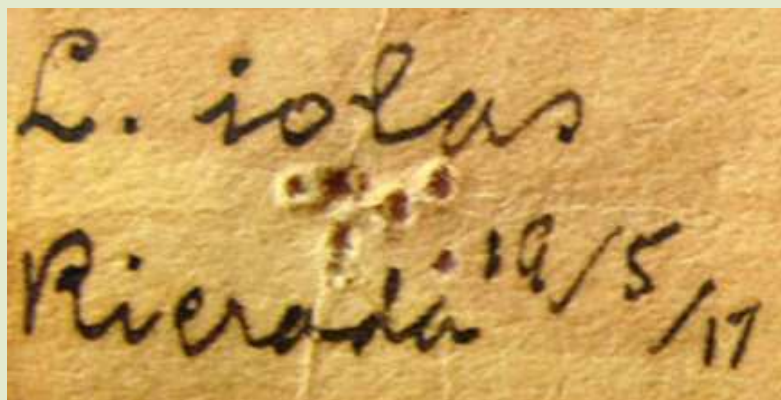 L. iolas
Rierada 19/5/17